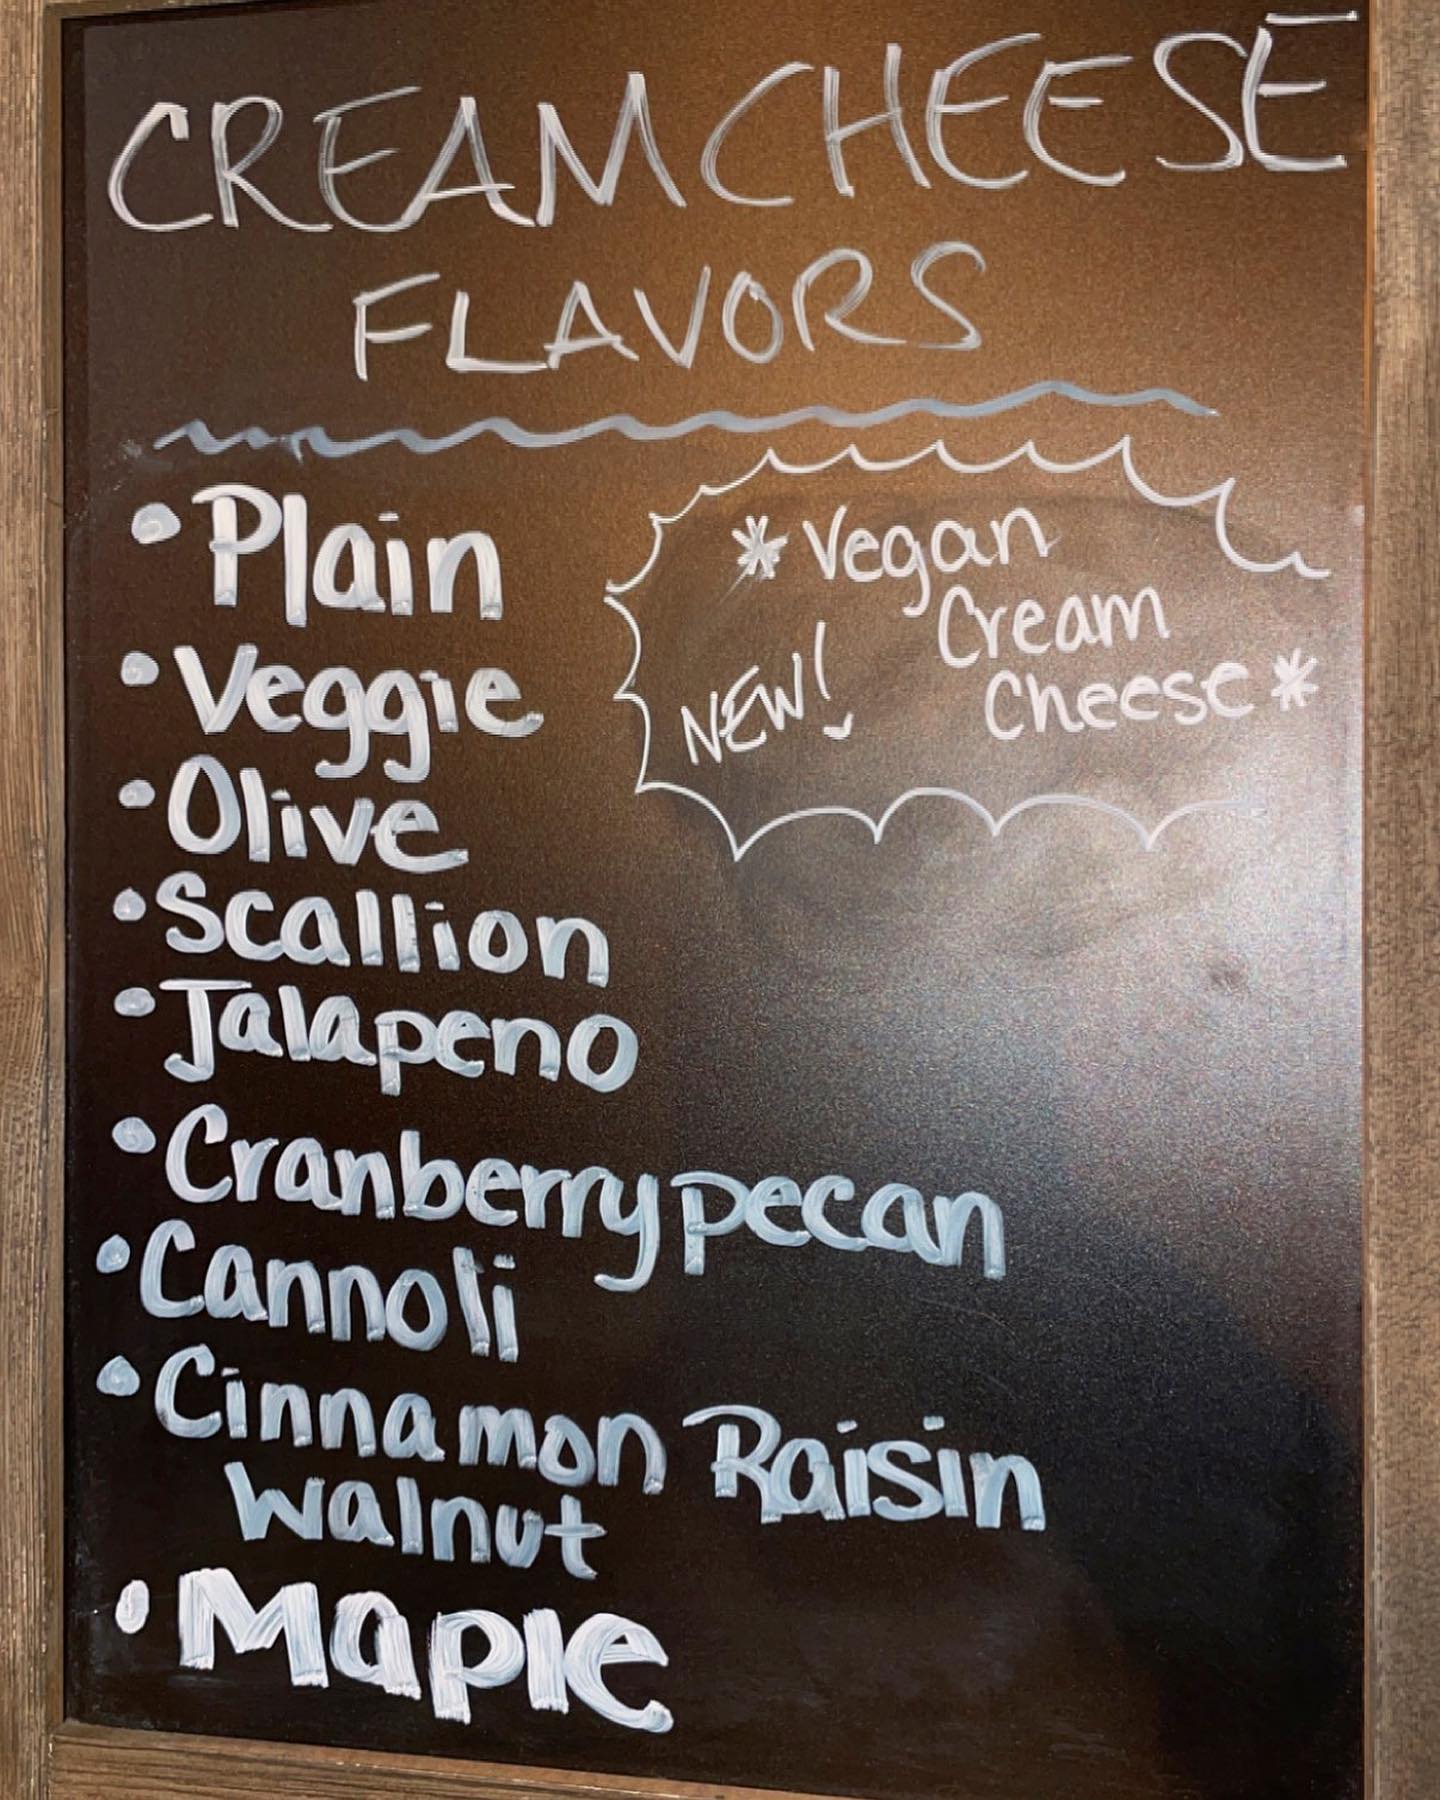 CREAM CHEESE
FLAVORS
• Plain
• Veggie
• Olive
• Scallion
• Jalapeno
• Cranberry pecan
• Cannoli
• Cinnamon Raisin
walnut
• Maple
*Vegan
Cream
Cheese*
NEW!